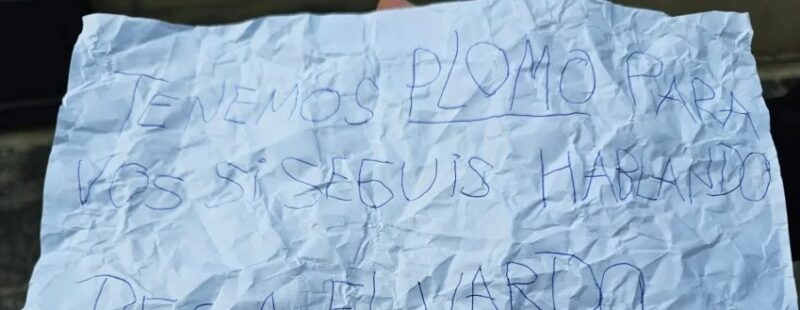 TENEMOS PLOMO PARA
VOS SI SEGUIS HABLANDO
EL VARDO